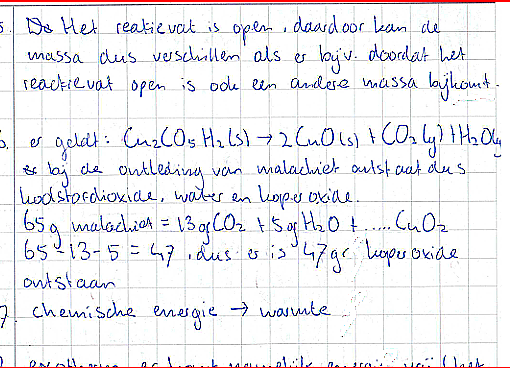 5. Het reatievat is open, daardoor kan de
massa dus verschillen als er bijv. doordat het
reactievat open is ook een andere massa bijkomt.
6. er geldt: Cu2CO5H2(s) → 2CuO(s) + CO2(g) + H2O(g)
bij de ontleding van malachiet ontstaat dus
koolstofdioxide, water en koperoxide.
65g malachiet = 13g CO2 + 5g H2O + ..... CuO2
65-13-5 = 47, dus er is 47gr koperoxide
ontstaan
7. chemische energie → warmte